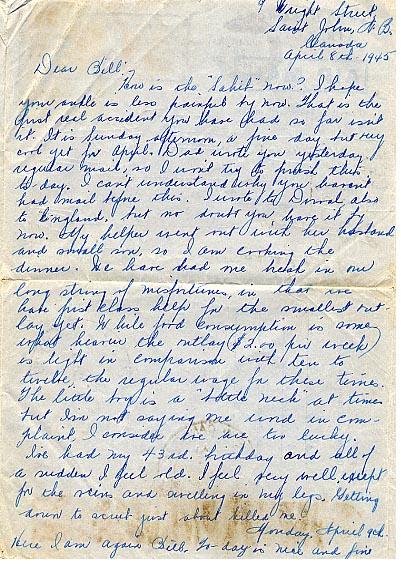 9 Wright Street,
Saint John, N.B.
Canada
April 8th, 1945
Dear Bill:-
How is the "Sahib" now? I hope
your ankle is less painful by now. That is the
first real accident you have had so far isn't
it. It is Sunday afternoon, a fine day but very
cool yet for April. Dad wrote you yesterday
regular mail, so I won't try to finish this
to day. I can't understand why you haven't
had mail before this. I wrote to Dorval, also
to England, but no doubt you have it by
now. My helper went out with her husband
and small son, so I am cooking the
dinner. We have had one break in our
long string of misfortunes, in that we
have first class help for the smallest out-
lay yet. While food consumption is some
what heavier the outlay $2.00 per week
is light in comparison with ten to
twelve, the regular wage for these times.
The little boy is a "bottle neck" at times
but I'm not saying one word in com-
plaint, I consider we are too lucky.
I've had my 43rd. birthday and all of
a sudden I feel old. I feel very well except
for the veins and swelling in my legs. Getting
down to scrub just about killed me.
Monday, April 9th.
Here I am again Bill. To-day is nice and fine